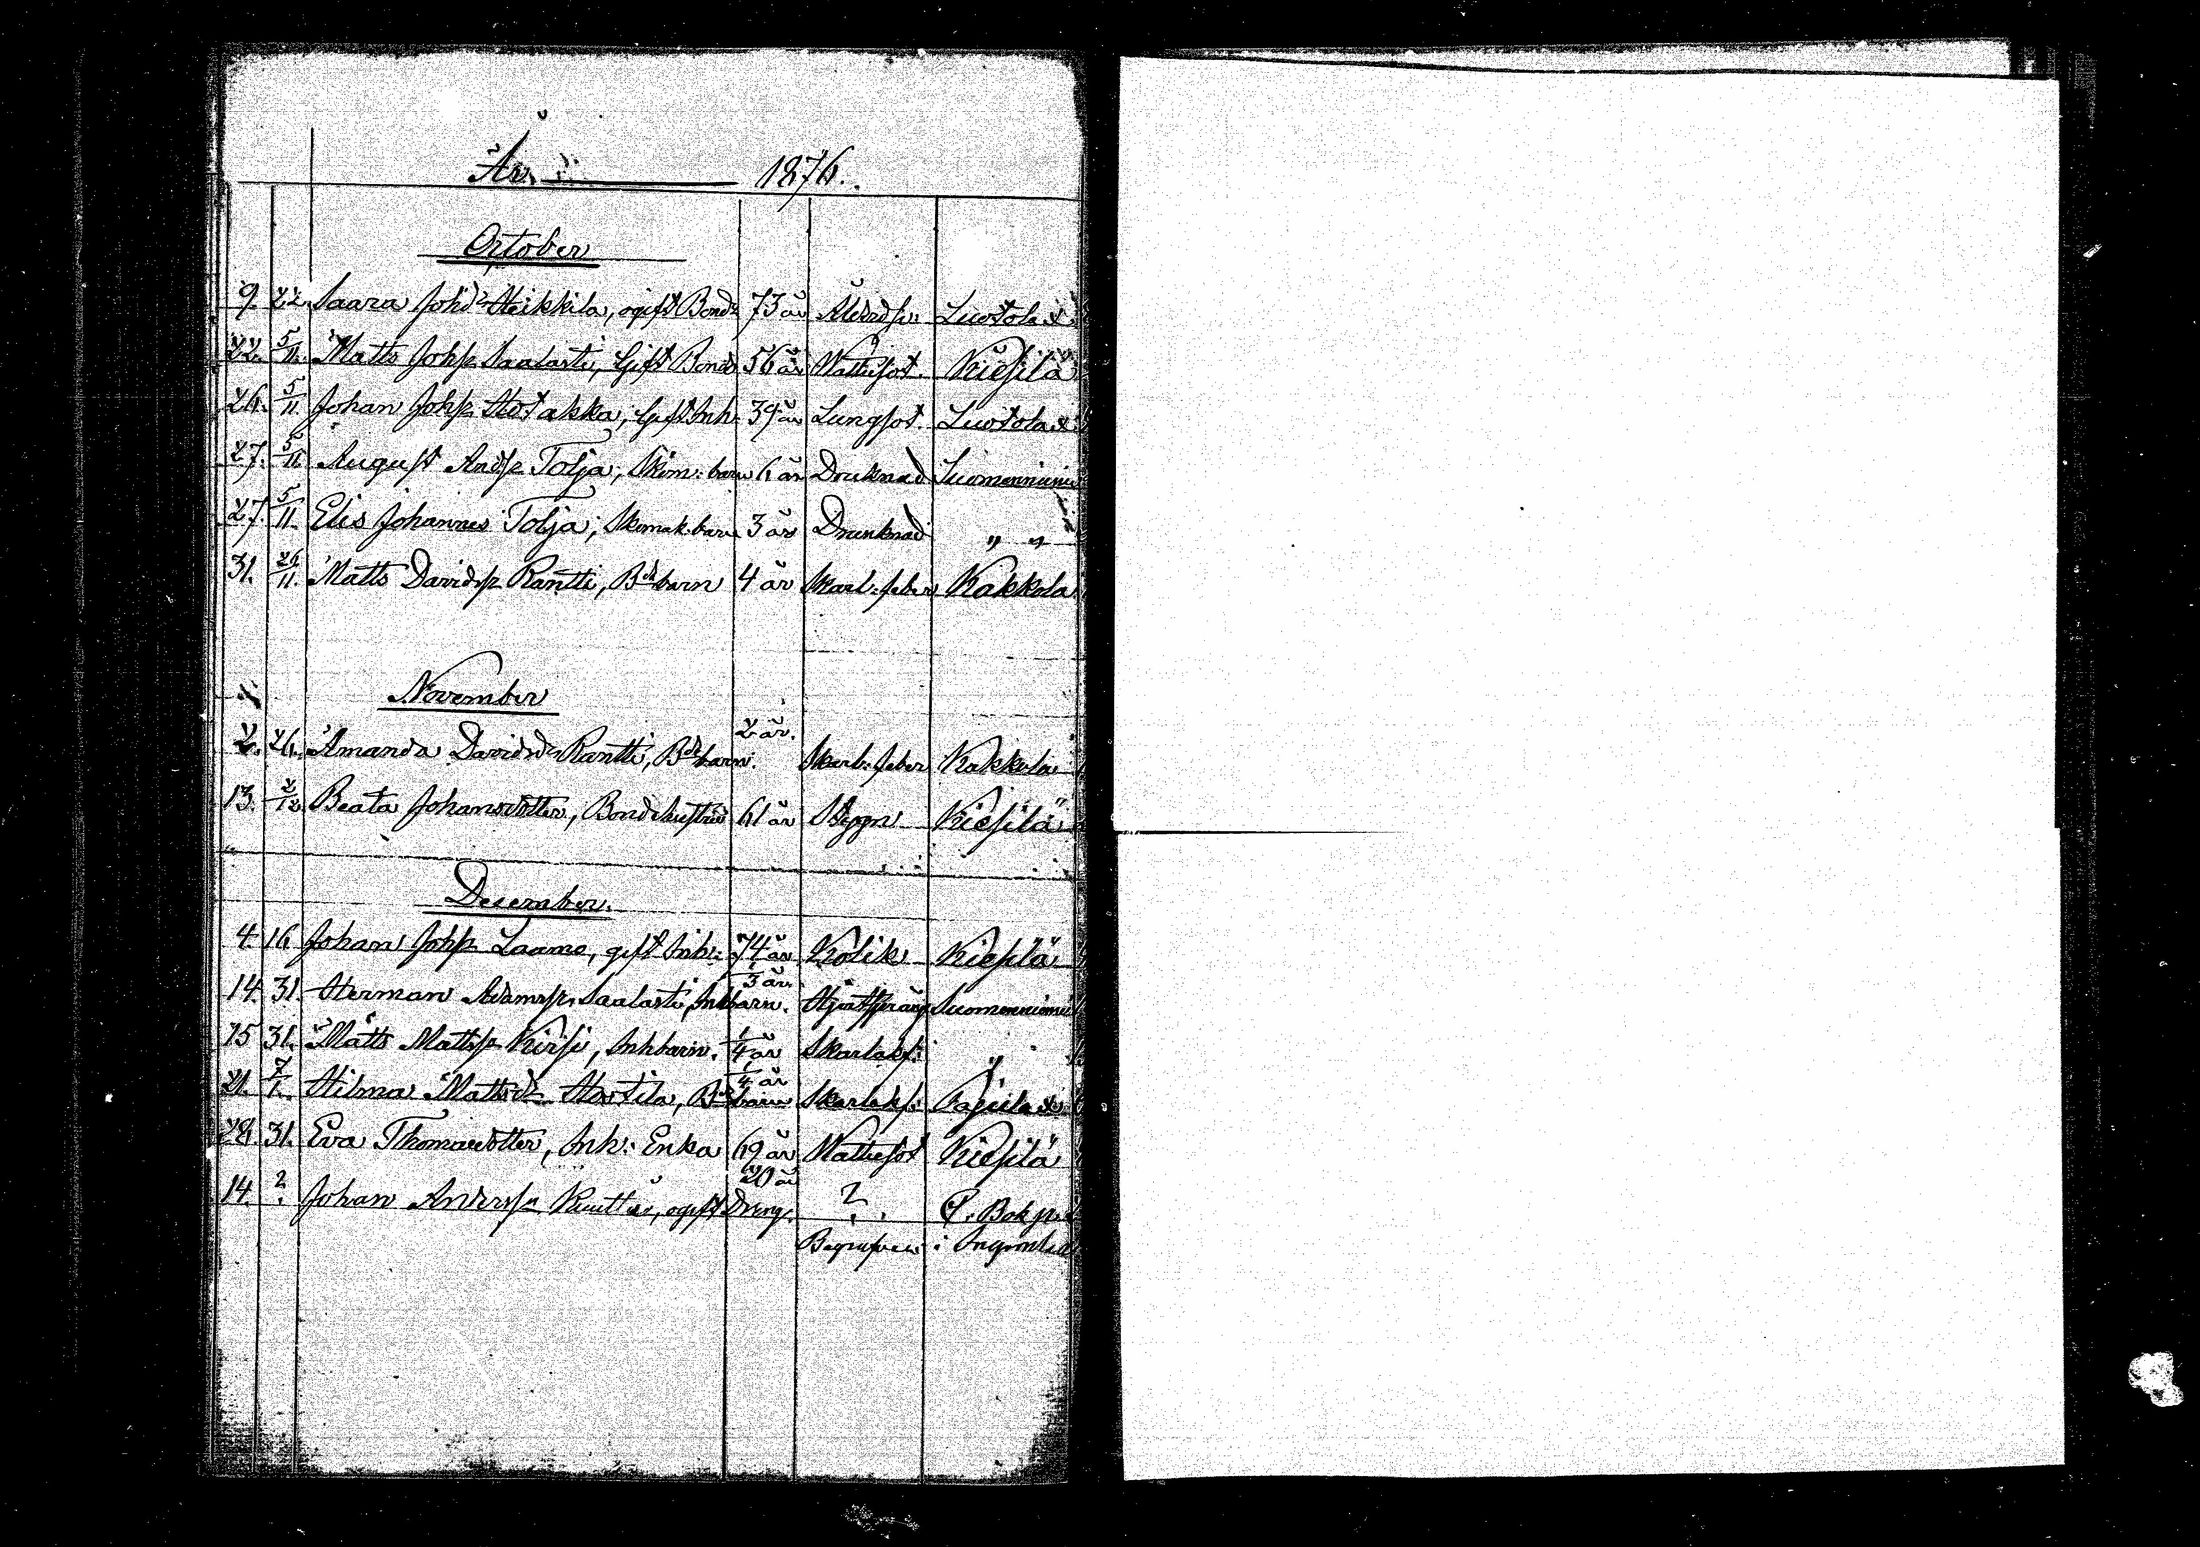 År 1876.
October
9. 22. Saara Johdr Heikkila, ogift Bond: 73 år Ålderds: Luotola
22. 5/11. Matts Johsn Saalasti, Gift Bond 56 år Wattusot. Kiesilä
26. 5/11 Johan Johsn Hotakka, Gift Inh: 39 år Lungsot. Luotola
27. 5/11 August Andsn Tolja, Skom: barn 6 år Druknad Suomenniemi
27. 5/11. Elis Johannes Tolja, Skomak. barn 3 år Drunknad " "
31. 26/11. Matts Davidsn Rantti, Bdebarn 4 år Skarl: feber Kakkola
November
2 år.
2. 26. Amanda Davidsdr Rantti, Bdebarn. Skarl: feber Kakkola
13. 2/12 Beata Johansdotter, Bondehustru 61 år Styng Kiesilä
December.
4 16 Johan Johsn Laamo, gift Inh: 74 år Kolik Kiesilä
1/3 år.
14. 31. Herman Adamsn Saalasti, Inhbarn. Suomenniemi
15 31. Matts Mattsn Kirsi, Inhbarn. 1/4 år Skarlaksf: "
1/4 år
21. 7/1. Hilma Mattsdr Hostila, Bdebarn Skarlaksf: Pajula
28. 31. Eva Thomasdotter, Inh: Enka 69 år Wattusot Kiesilä
20 år
14. ? Johan Andersn ogift Dreng. ?
Begrafven i